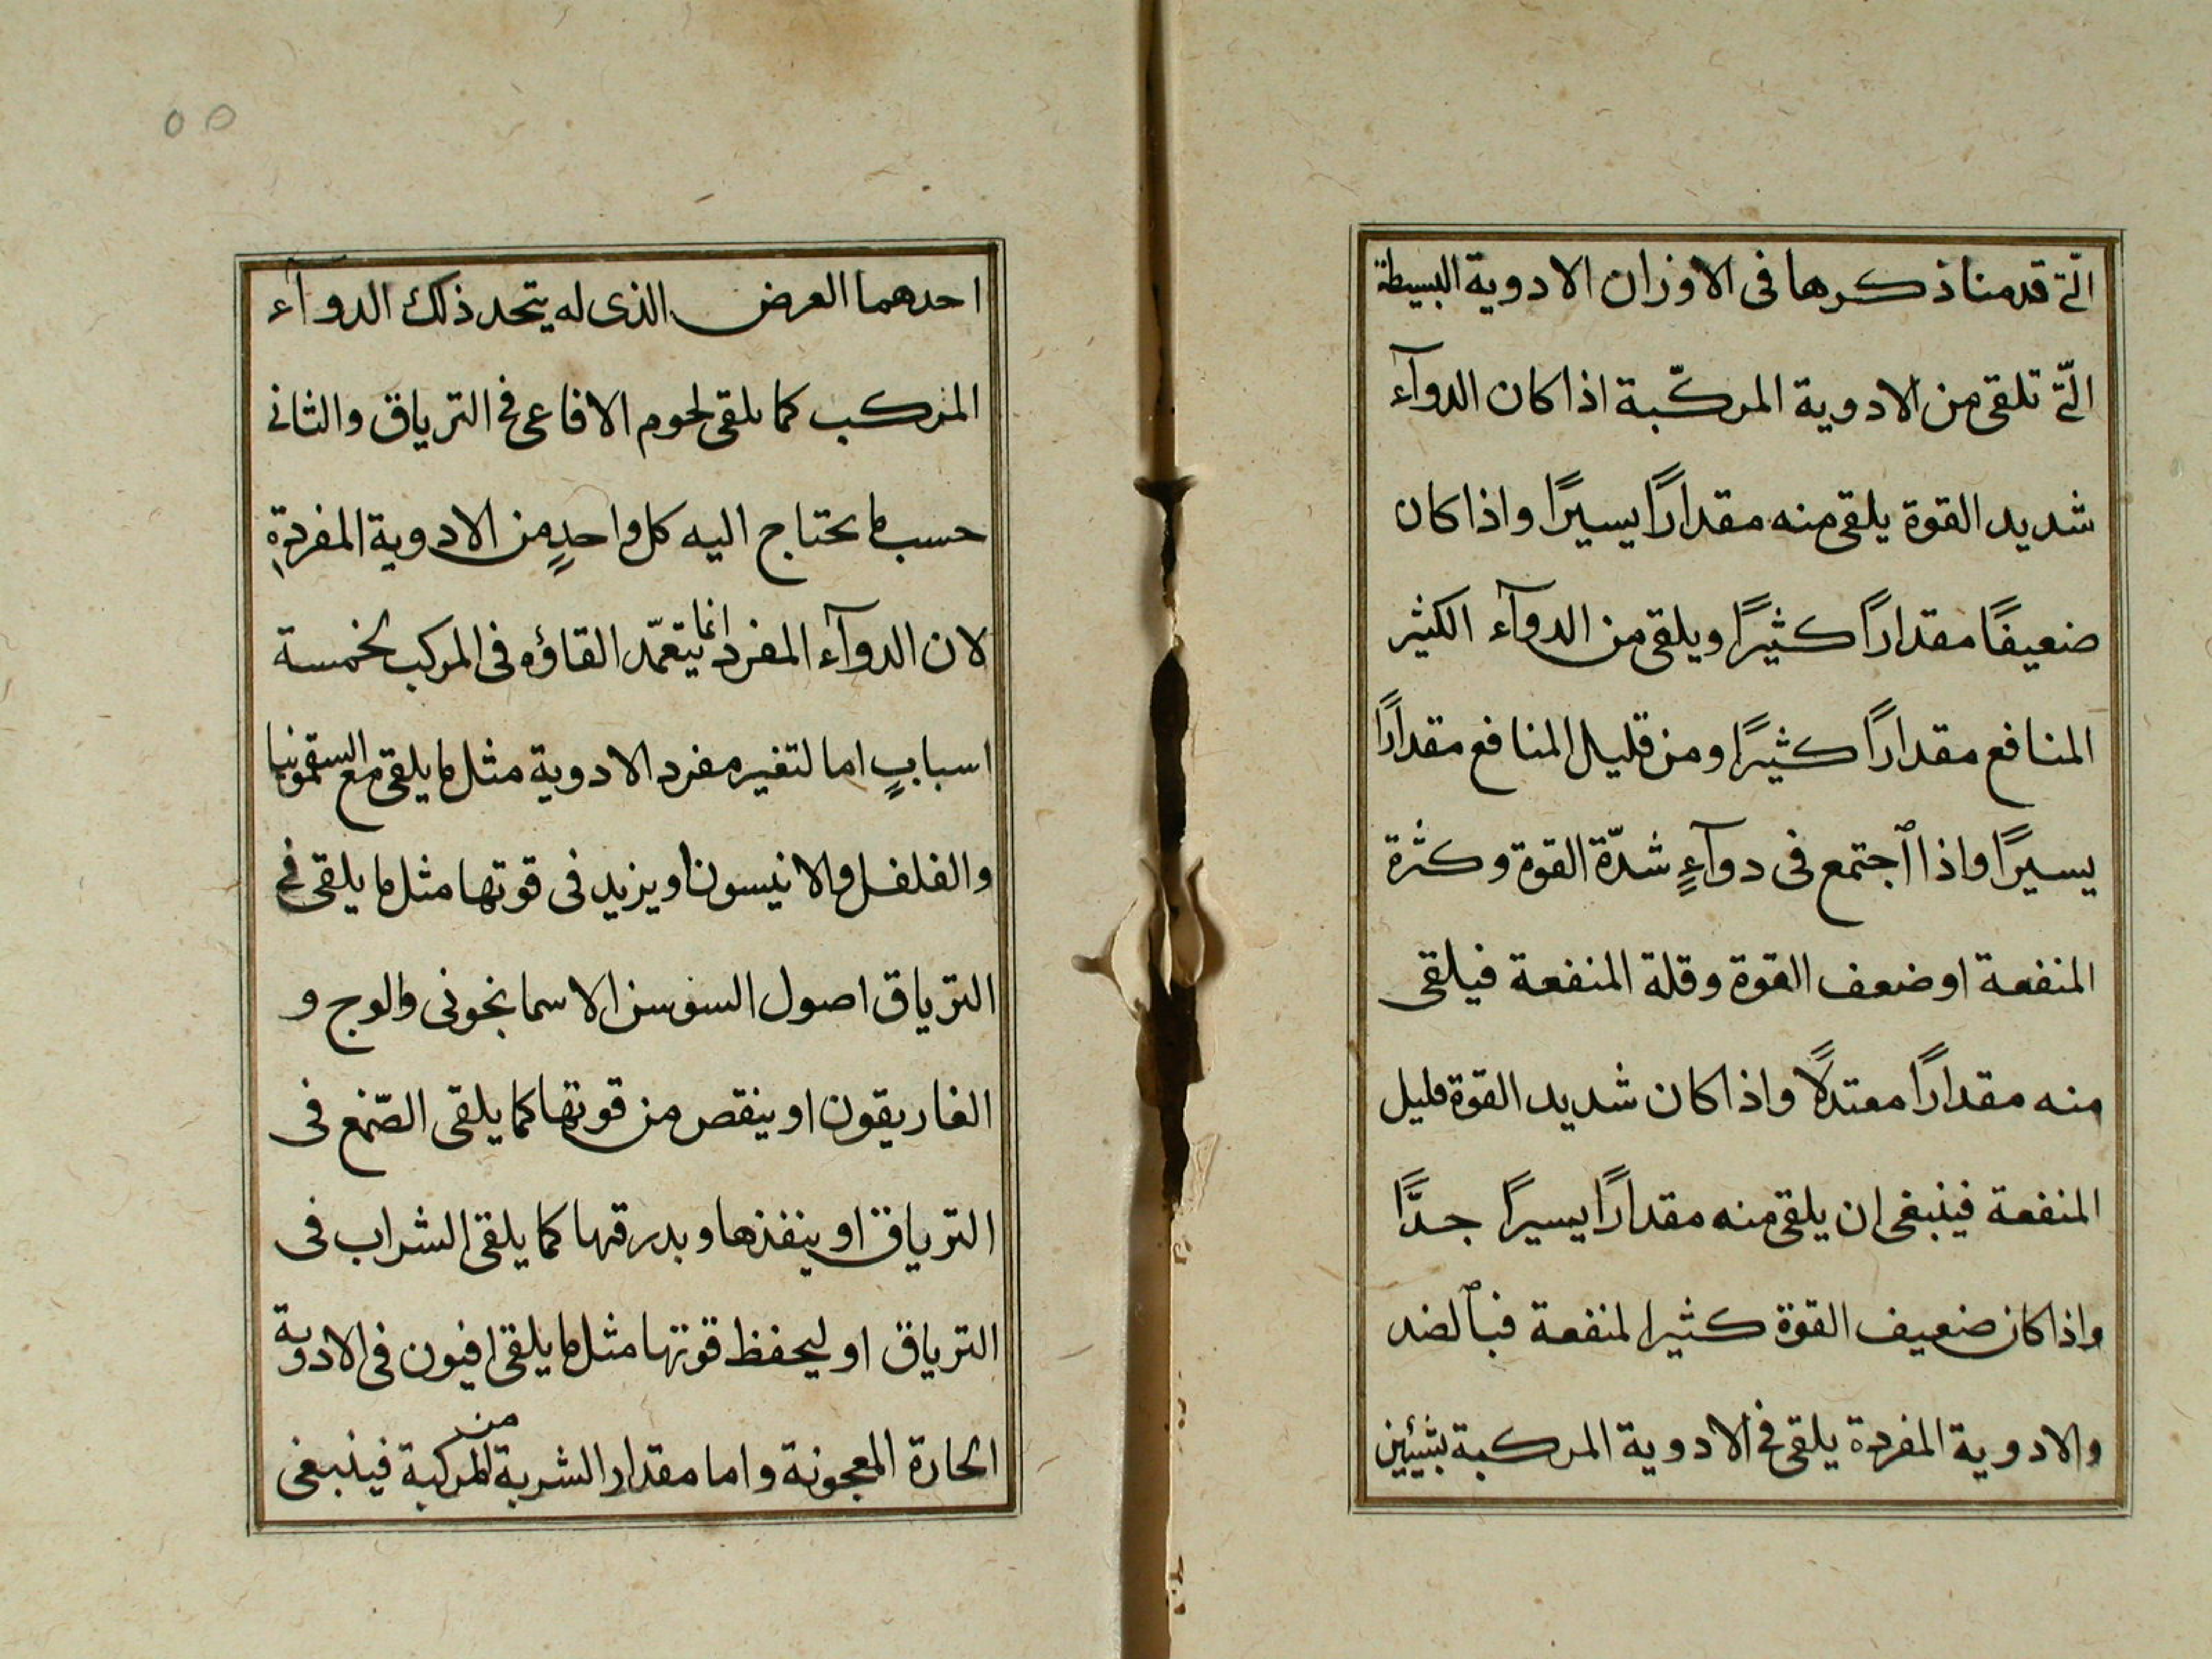 الّتى قدمنا ذكرها فى الاوزان الادوية البسيطة
الّتى تلقى من الادوية المركّبة اذا كان الدوآء
شديد القوة يلقى منه مقدارًا يسيرًا واذا كان
ضعيفًا مقدارًا كثيرًا ويلقى من الدوآء الكثير
المنافع مقدارًا كثيرًا ومن قليل المنافع مقدارًا
يسيرًا واذا ٱجتمع فى دوآءٍ شدّة القوة وكثرة
المنفعة او ضعف القوة وقلة المنفعة فيلقى
منه مقدارًا معتدلًا واذا كان شديد القوة قليل
المنفعة فينبغى ان يلقى منه مقدارًا يسيرًا جدًّا
واذا كان ضعيف القوة كثير المنفعة فبٱلضد
والادوية المفردة يلقى فى الادوية المركبة بشيئين
احدهما العرض الذى له يتخد ذلك الدوآء
المركب كما يلقى لحوم الافاعى فى الترياق والثانى
حسب ما يحتاج اليه كل واحدٍ من الادوية المفردةِ
لان الدوآء المفرد انما يتعمّد القاؤه فى المركب لخمسة
اسبابٍ اما لتغير مفرد الادوية مثل ما يلقى مع السقمونيا
والفلفل والانيسون او يزيد فى قوتها مثل ما يلقى فى
الترياق اصول السوسن الاسمانجونى والوج و
الغاريقون او ينقص من قوتها كما يلقى الصّمغ فى
الترياق او ينفذها وبدرقها كما يلقى الشراب فى
الترياق او ليحفظ قوتها مثل ما يلقى افيون فى الادوية
الحارة المعجونة واما مقدار الشربة من المركبة فينبغى